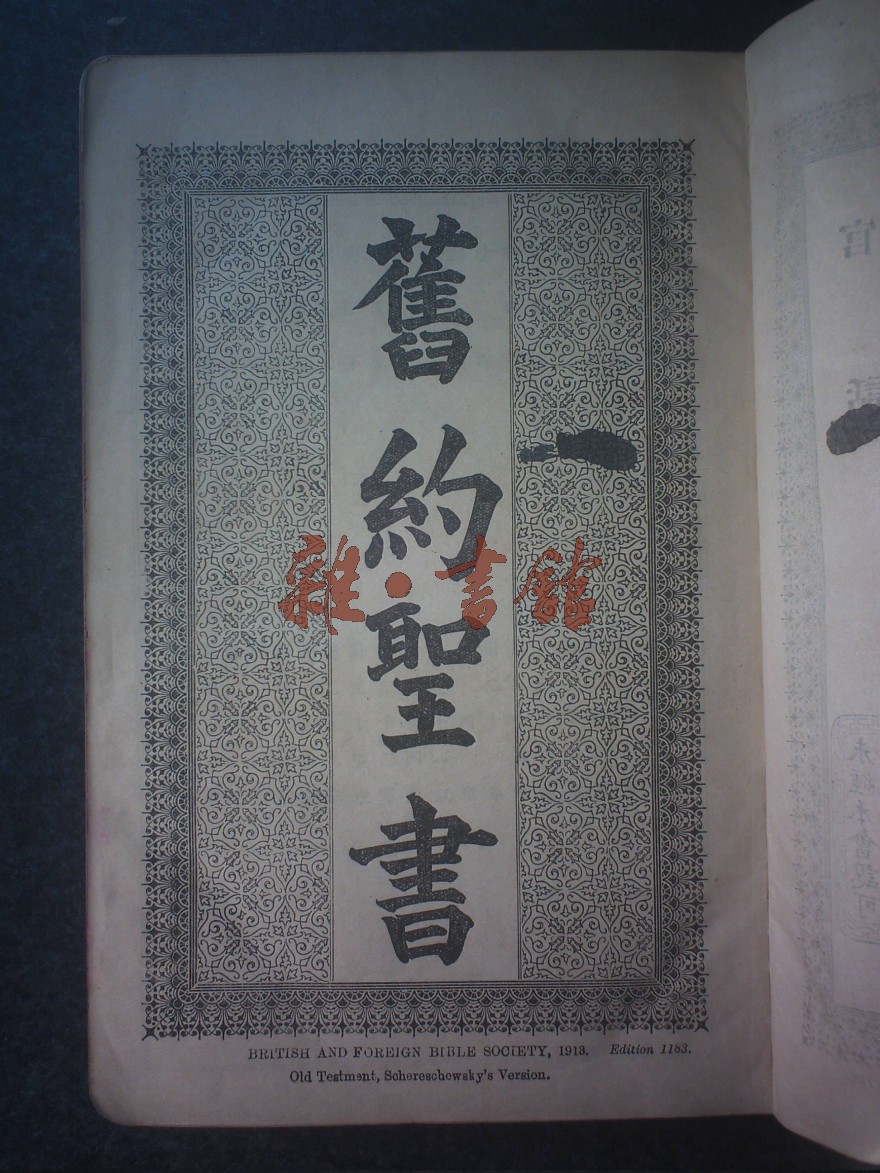 舊約聖書
雜·書館
BRITISH AND FOREIGN BIBLE SOCIETY, 1913. Edition 1183.
Old Testment, Schereschowsky's Version.
官
話